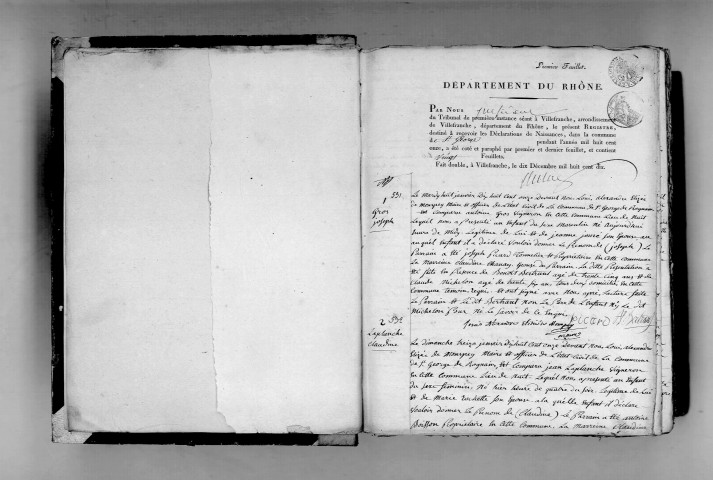 Premier Feuillet.
DÉPARTEMENT DU RHÔNE.
PAR NOUS président
du Tribunal de première instance séant à Villefranche, arrondissement
de Villefranche, département du Rhône, le présent REGISTRE,
destiné à recevoir les Déclarations de Naissances, dans la commune
de St George pendant l'année mil huit cent
onze, a été coté et paraphé par premier et dernier feuillet, et contient
Vingt Feuillets.
Fait double, à Villefranche, le dix Décembre mil huit cent dix.
1
Gros
joseph
Le mardy huit janvier Dix huit Cent onze Devant nous Loui, alexandre Elizé
de Monspey Maire et officier de L'état Civil de La Commune de St George de Rogneins
est Comparu antoine Gros Vigneron en Cette Commune Lieu de Nuit
Lequel nous a présenté un Enfant du sexe Masculin Né aujourdhui
heure de Midy Légitime de Lui et de jeanne son Epouse au
auquel Enfant il a déclaré Vouloir donner Le Prénom de (joseph) Le
Parrain a été joseph Picard Tonnelier et Propriétaire en Cette Commune
La Marreine Claudine Epouse du Parrain. La dite Présentation a
été faite en Présence de Benoit Bertrand agé de trente Cinq ans et de
Claude Michelon agé de trente six ans tous deux domiciliés en Cette
Commune Témoin Requis et ont signé avec Nous après Lecture faite
Le Parrain et Le dit Bertrand non Le Père de L'enfant Ny Le dit
Michelon Pour ne Le savoir de Ce Enquis
Louis Alexandre Elisée Monspey PICARD
maire
2
Laplanche
Claudine
Le dimanche treize janvier dix huit Cent onze Devant Nous Loui, alexandre
Elizé de Monspey Maire et officier de L'état Civil de La Commune
de St George de Rogneins, est Comparu jean Laplanche Vigneron
en Cette Commune Lieu de Nuit. Lequel Nous a présenté un Enfant
du sexe féminin. Né hier heure de quatre du soir. Légitime de Lui
et de Marie Rochette son Epouse a la quelle Enfant il déclare
Vouloir donner Le Prénom de (Claudine) Le Parrain a été antoine
Buisson Propriétaire en Cette Commune, La Marreine Claudine